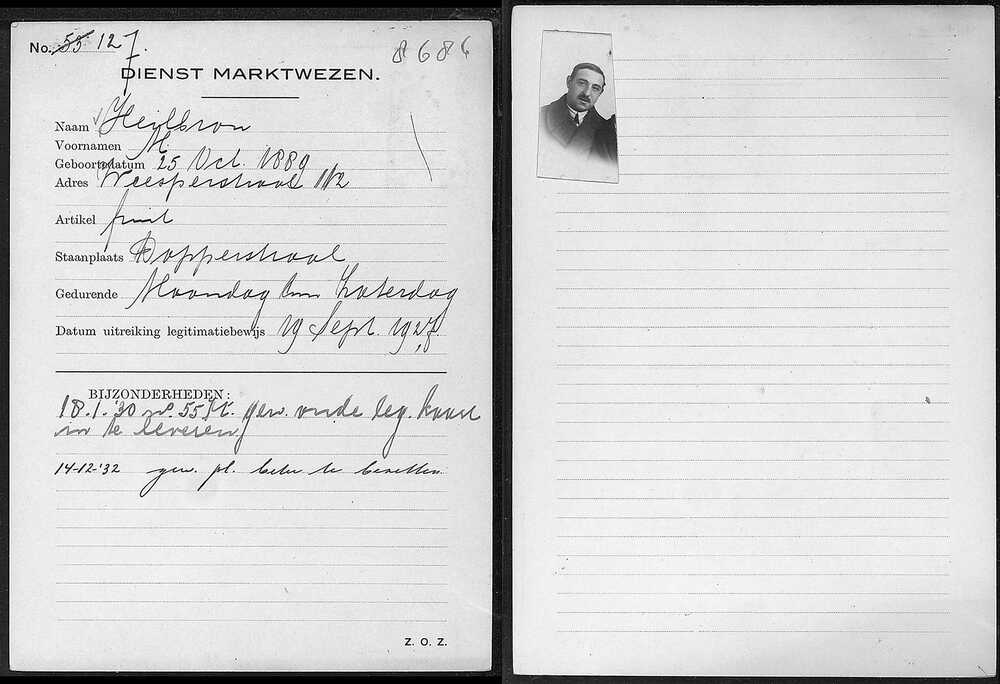 No. 55 127.
8686
DIENST MARKTWEZEN.
Naam Heilbron
Voornamen M.
Geboortedatum 25 Oct. 1889
Adres Weesperstraat 112
Artikel fruit
Staanplaats Dapperstraat
Gedurende Maandag t/m Zaterdag
Datum uitreiking legitimatiebewijs 19 Sept. 1927.
BIJZONDERHEDEN:
18.1.'30 no. 55 gew. oude leg. kaart
in te leveren
14-12-'32 gew. pl. beter te bezetten.
Z. O. Z.